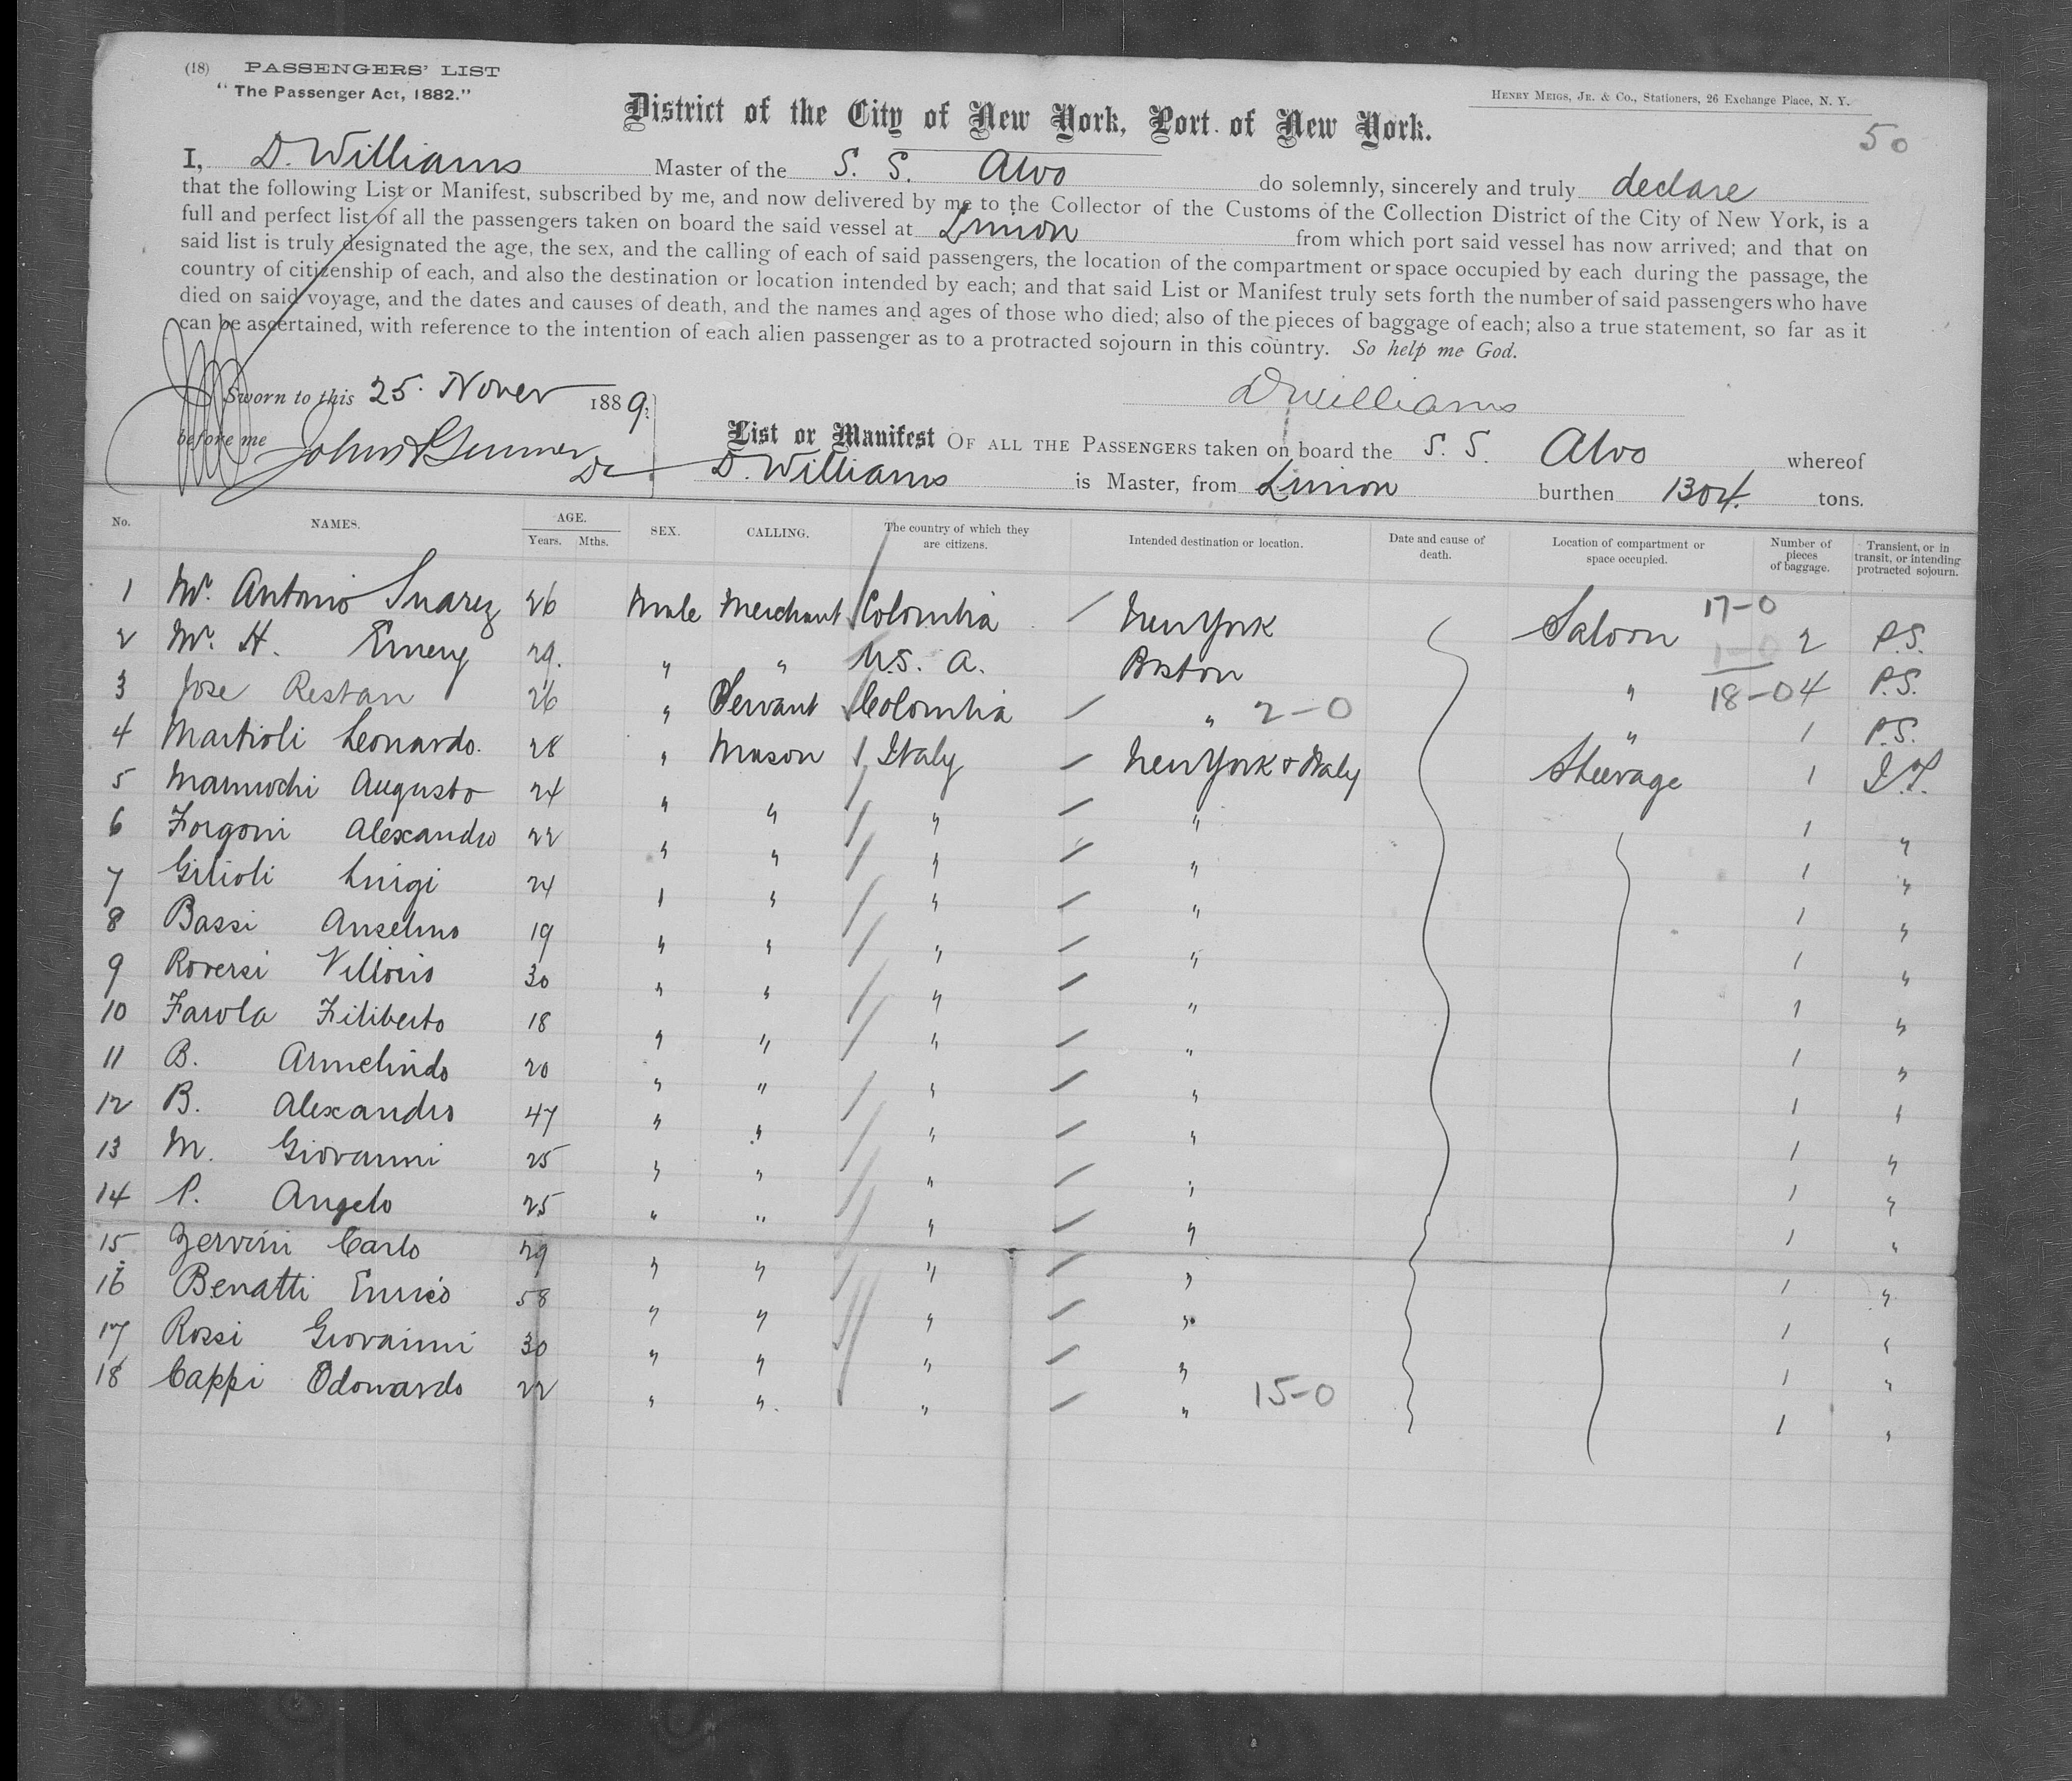 (18) PASSENGERS' LIST
"The Passenger Act, 1882."
HENRY MEIGS, JR. & CO., Stationers, 26 Exchange Place, N. Y.
District of the City of New York, Port of New York.
50
I, D. Williams Master of the S. S. Alvo do solemnly, sincerely and truly declare
that the following List or Manifest, subscribed by me, and now delivered by me to the Collector of the Customs of the Collection District of the City of New York, is a
full and perfect list of all the passengers taken on board the said vessel at Limon from which port said vessel has now arrived; and that on
said list is truly designated the age, the sex, and the calling of each of said passengers, the location of the compartment or space occupied by each during the passage, the
country of citizenship of each, and also the destination or location intended by each; and that said List or Manifest truly sets forth the number of said passengers who have
died on said voyage, and the dates and causes of death, and the names and ages of those who died; also of the pieces of baggage of each; also a true statement, so far as it
can be ascertained, with reference to the intention of each alien passenger as to a protracted sojourn in this country. So help me God.
Sworn to this 25. Nover 1889.
DWilliams
before me John
List or Manifest OF ALL THE PASSENGERS taken on board the S. S. Alvo whereof
D. Williams is Master, from Limon burthen 1304. tons.
No. NAMES. AGE. Years. Mths. SEX. CALLING. The country of which they are citizens. Intended destination or location. Date and cause of death. Location of compartment or space occupied. Number of pieces of baggage. Transient, or in transit, or intending protracted sojourn.
1 Mr. Antonio Suarez 26 Male Merchant Colombia / New York Saloon 17-0 2 P.S.
2 Mr. H. Emery 29. " " U.S. A. Boston " 1-0 4 P.S.
3 Jose Restan 26 " Servant Colombia / " 2-0 " 18-0 1 P.S.
4 Martioli Leonardo. 28 " Mason Italy / New York & Italy Steerage 1 I.T.
5 Augusto 24 " " " / " 1 "
6 Forgoni Alexandro 22 " " " / " 1 "
7 Gilioli Luigi 24 " " " / " 1 "
8 Bassi Anselmo 19 " " " / " 1 "
9 Roversi Vittorio 30 " " " / " 1 "
10 Farola Filiberto 18 " " " / " 1 "
11 B. Armelindo 20 " " " / " 1 "
12 B. Alexandro 47 " " " / " 1 "
13 M. Giovanni 25 " " " / " 1 "
14 P. Angelo 25 " " " / " 1 "
15 Zervini Carlo 29 " " " / " 1 "
16 Benatti Enrico 58 " " " / " 1 "
17 Rossi Giovanni 30 " " " / " 1 "
18 Cappi Odowardo 22 " " " / " 15-0 1 "